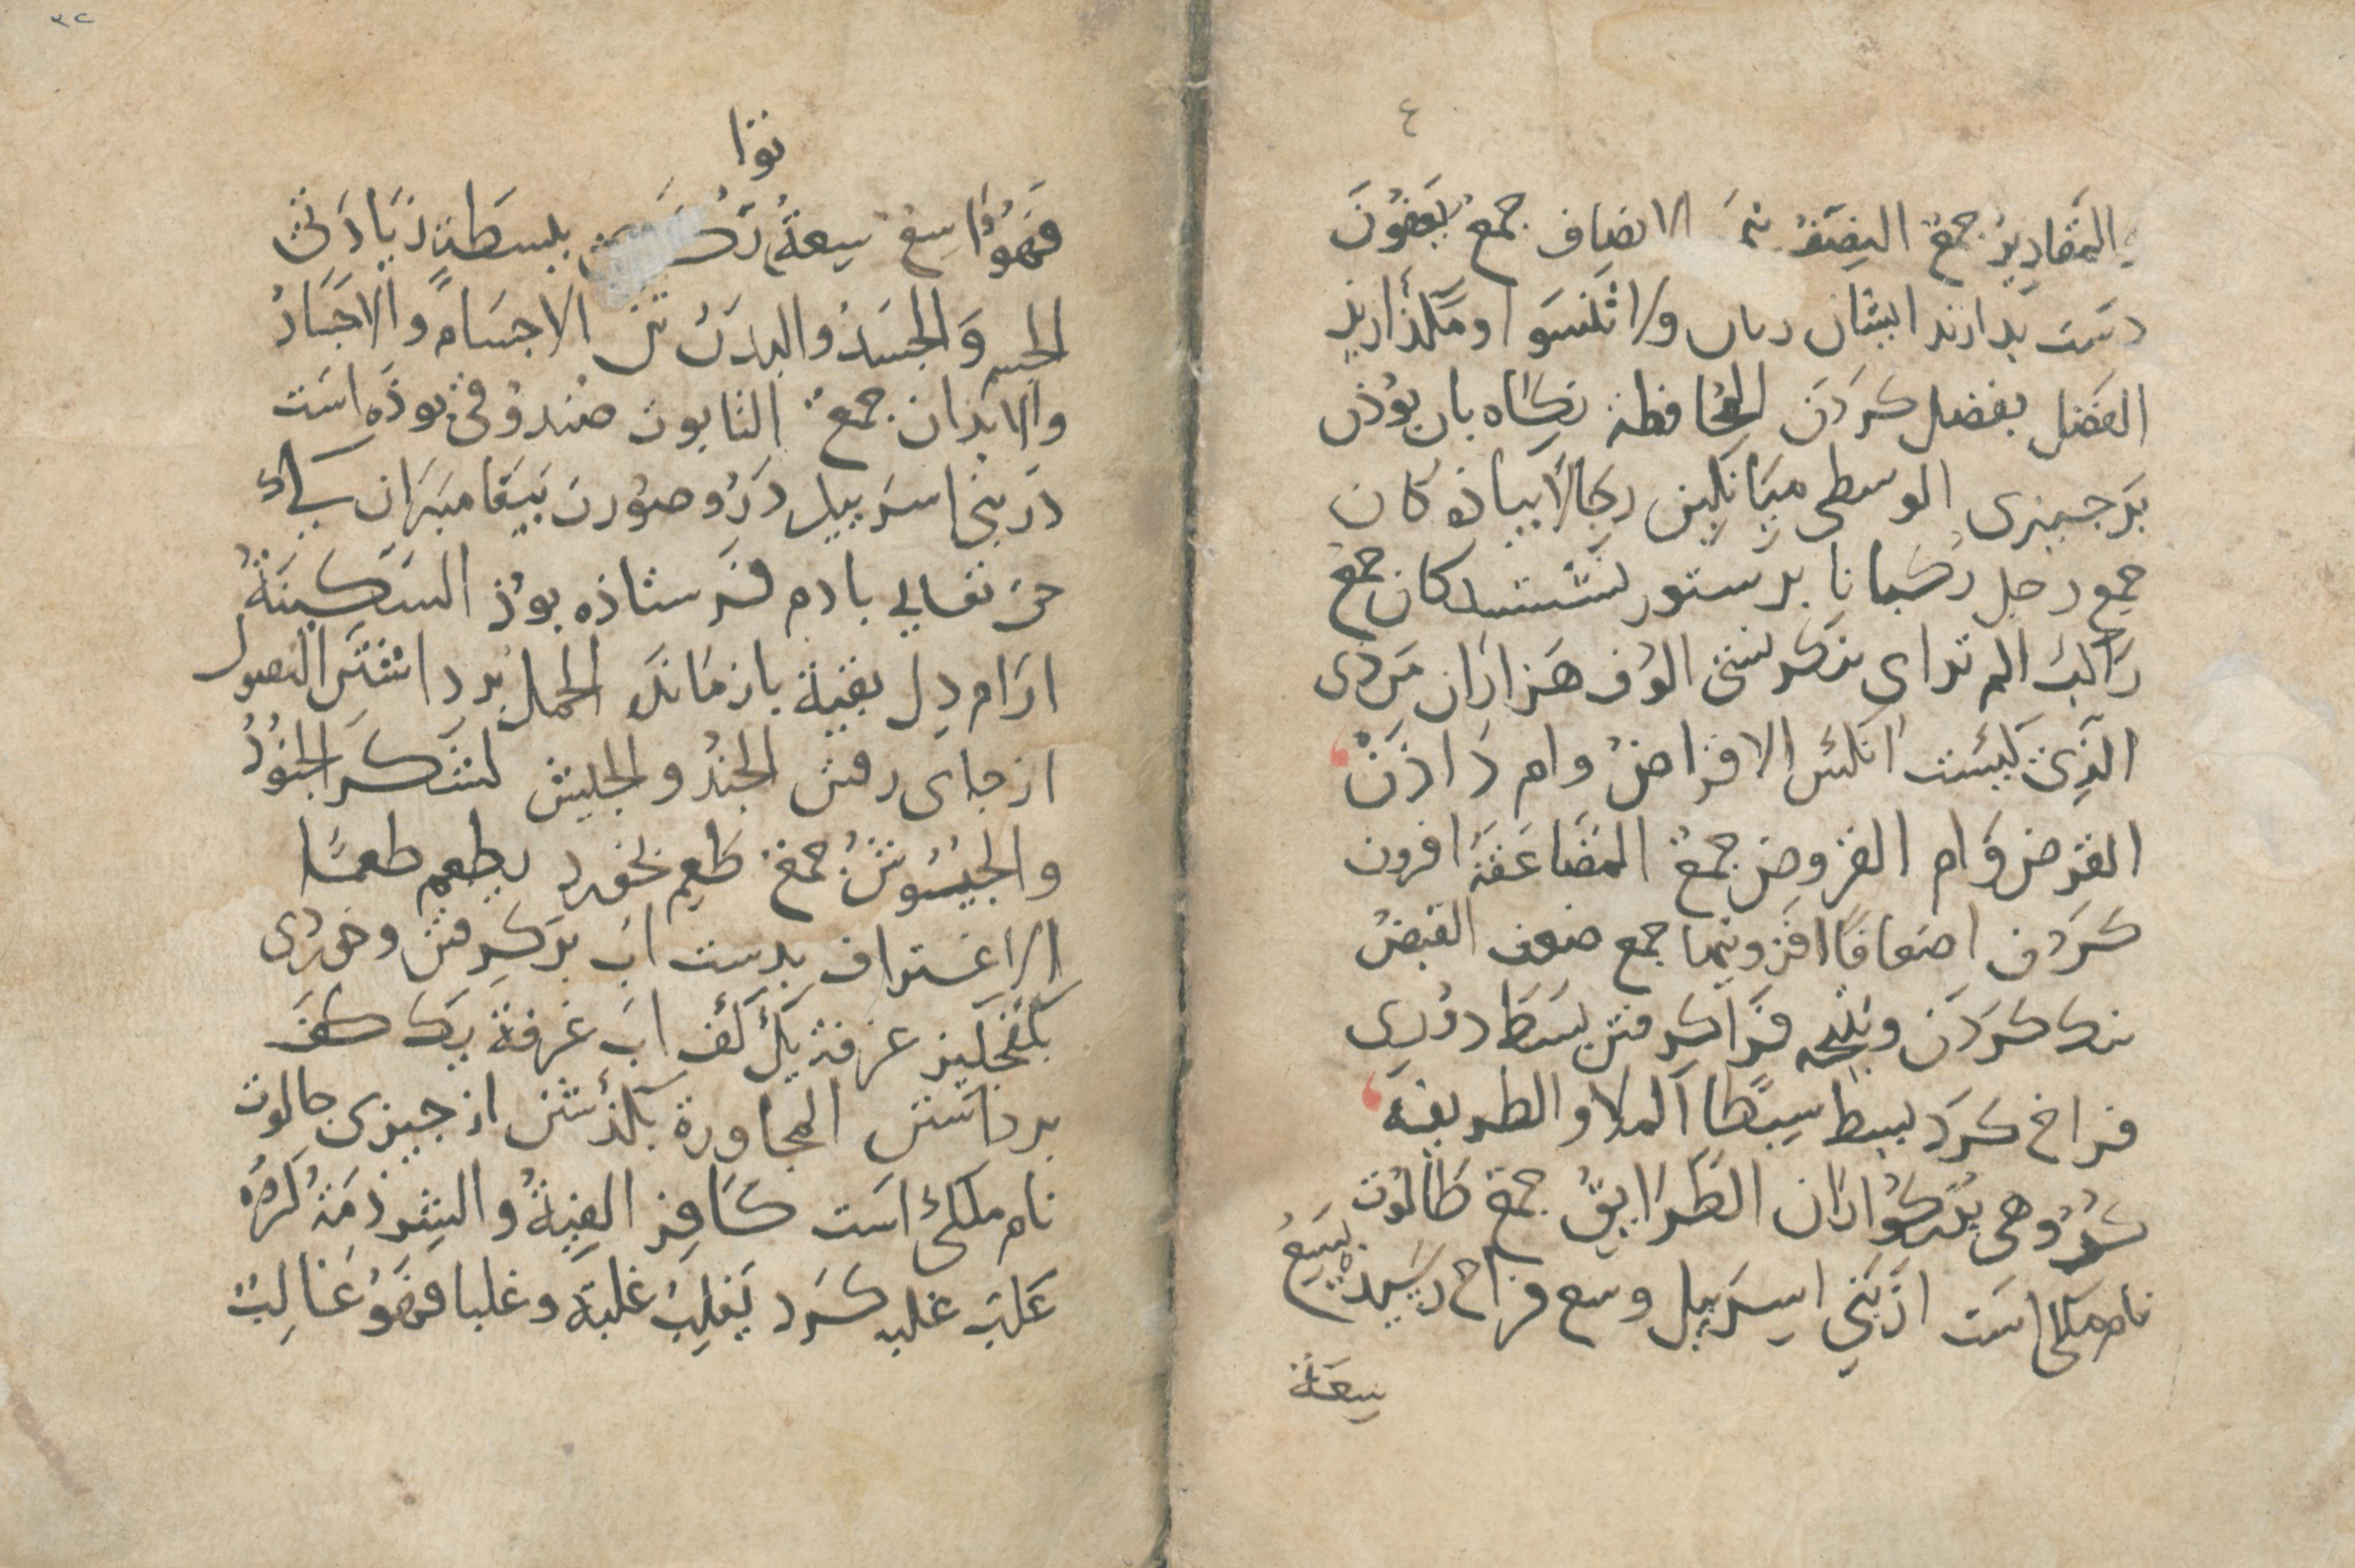 ٤
المقادیر جمع النصف نیمه الانصاف جمع یعفون
دست بدارند ایشان زنان ولا تنسوا ومگذارید
الفضل بفضل کردن المحافظة نگاه بان بوذن
بر جیزی الوسطی میانگین رجالا پیاذه کان
جمع رجل رکبانا بر ستور نشستکان جمع
راکب الم تر ای ننکرستی الوف هزاران مردی
الذی کیست انکس الاقراض وام داذن
القرض وام القروض جمع المضاعفة افزون
کردن اضعافا افزونیها جمع ضعف القبض
تنک کردن وپنجه فراکرفتن بسط روزی
فراخ کرد یبسط بسطا الملا والطریقة
کروهی بزرکواران الطرایق جمع طالوت
نام ملکی است از بنی اسریبل وسع فراخ رسید یسع
سعة
٣٢
توا
فهو واسع سعة بسطة زیادتی
الجسم والجسد والبدن تن الاجسام والاجساد
والابدان جمع التابوت صندوقی بوذه است
در بنی اسریبل درو صورت پیغامبران کی
حق تعالی بادم فرستاذه بوذ السکینة
ارام دل بقیة بازمانده الحمل برداشتن الفصول
از جای رفتن الجند والجیش لشکر الجنود
والجیوش جمع طعم بخورد یطعم طعما
الاغتراف بدست اب برکرفتن وخوردی
بکفجلیز غرفة یک کف اب غرفة یک کف
برداشتن المجاوزة بگذشتن از جیزی جالوت
نام ملکی است کافر الفیة والشرذمة کروه
غلب غلبه کرد یغلب غلبة وغلبا فهو غالب